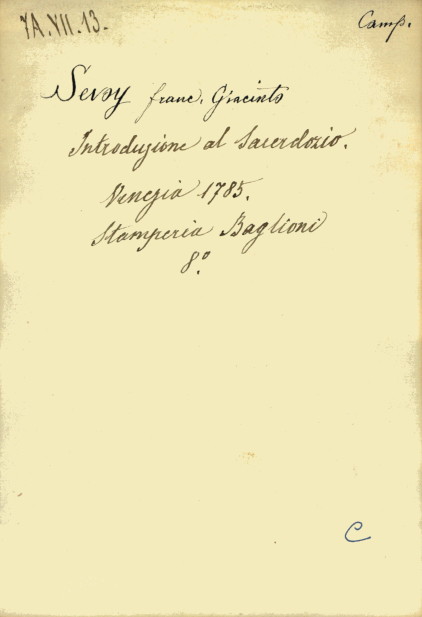 7A.VII.13.
Camp.
Sevoy franc. Giacinto
Introduzione al Sacerdozio.
Venezia 1785.
Stamperia Baglioni
8.º
C